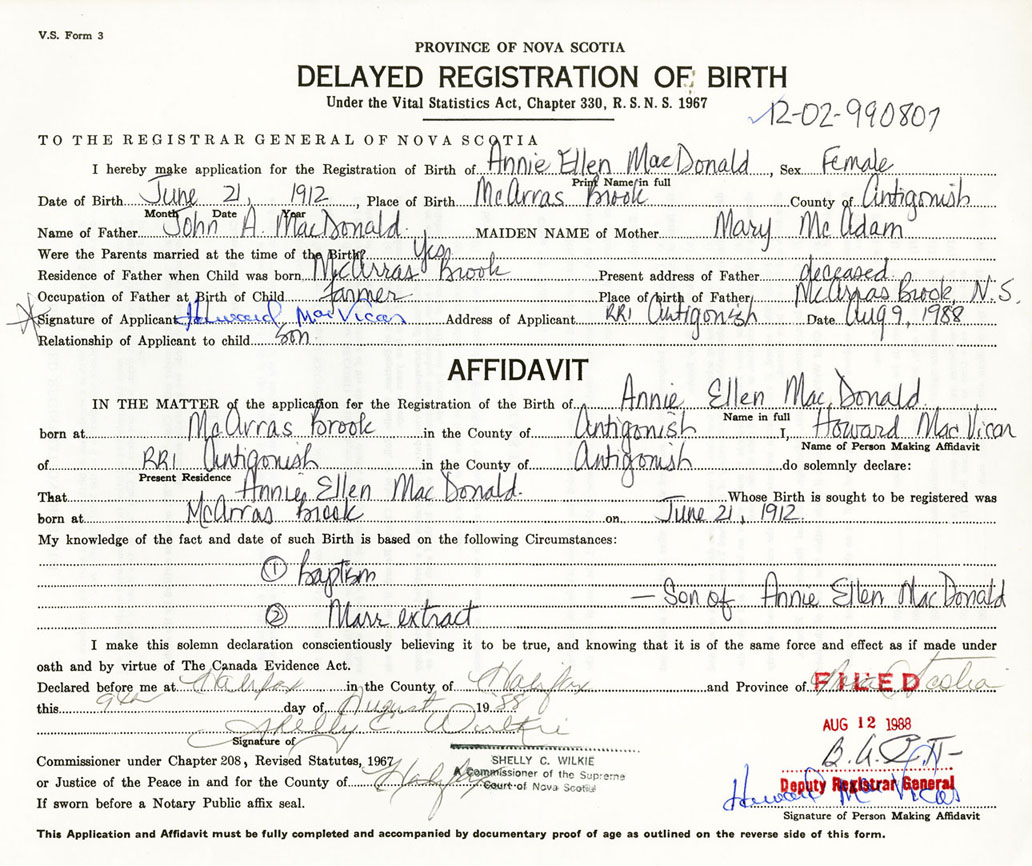 V.S. Form 3
PROVINCE OF NOVA SCOTIA
DELAYED REGISTRATION OF BIRTH
Under the Vital Statistics Act, Chapter 330, R.S.N.S. 1967
12-02-990807
TO THE REGISTRAR GENERAL OF NOVA SCOTIA
I hereby make application for the Registration of Birth of Annie Ellen MacDonald, Sex Female
Print Name in full
Date of Birth June 21, 1912, Place of Birth McArras Brook County of Antigonish
Month Date Year
Name of Father John A. MacDonald MAIDEN NAME of Mother Mary McAdam
Were the Parents married at the time of the Birth Yes
Residence of Father when Child was born McArras Brook Present address of Father deceased
Occupation of Father at Birth of Child farmer Place of birth of Father McArras Brook, N.S.
Signature of Applicant Howard MacVicar Address of Applicant RR1 Antigonish Date Aug 9, 1988
Relationship of Applicant to child son
AFFIDAVIT
IN THE MATTER of the application for the Registration of the Birth of Annie Ellen MacDonald
Name in full
born at McArras Brook in the County of Antigonish I, Howard MacVicar
Name of Person Making Affidavit
of RR1 Antigonish in the County of Antigonish do solemnly declare:
Present Residence
That Annie Ellen MacDonald Whose Birth is sought to be registered was
born at McArras Brook on June 21, 1912
My knowledge of the fact and date of such Birth is based on the following Circumstances:
① Baptism
— Son of Annie Ellen MacDonald
② Marr extract
I make this solemn declaration conscientiously believing it to be true, and knowing that it is of the same force and effect as if made under
oath and by virtue of The Canada Evidence Act.
Declared before me at Halifax in the County of Halifax and Province of Nova Scotia
FILED
this 9th day of August 1988
AUG 12 1988
Shelly C. Wilkie
Signature of
Commissioner under Chapter 208, Revised Statutes, 1967
SHELLY C. WILKIE
or Justice of the Peace in and for the County of Halifax
A Commissioner of the Supreme
Court of Nova Scotia
Deputy Registrar General
Howard MacVicar
If sworn before a Notary Public affix seal.
Signature of Person Making Affidavit
This Application and Affidavit must be fully completed and accompanied by documentary proof of age as outlined on the reverse side of this form.